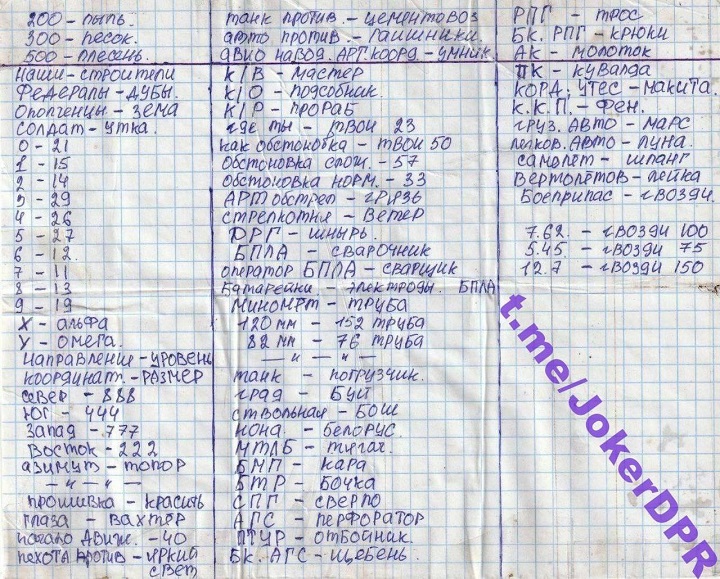 200 - пыль.
300 - песок.
500 - плесень.
наши - строители
Федералы - дубы.
Ополченцы - зема
Солдат - утка.
0 - 21
1 - 15
2 - 14
3 - 29
4 - 26
5 - 27
6 - 12.
7 - 11
8 - 13
9 - 19
X - альфа
У - омега.
направление - уровень
координат. - размер
север - 888
юг - 444
Запад - 777
Восток - 222
азимут - топор
— " — " —
прошивка - красить
глаза - вахтёр
начало движ. - 40
пехота против - яркий
свет
танк против. - цементовоз
авто против - гаишники.
авио навод. арт. коорд. - умник.
к/в - мастер
к/о - подсобник.
к/р - прораб
где ты - твои 23
как обстоновка - твои 50
Обстоновка слож. - 57
обстоновка норм. - 33
АРТ обстрел - грязь
стрелкотня - ветер
ДРГ - шнырь.
БПЛА - сварочник
оператор БПЛА - сварщик
батарейки - электроды. БПЛА
миномёт - труба
120 мм - 152 труба
82 мм - 76 труба
— " — " —
танк - погрузчик.
град - Буй
ствольная - БОШ
нона - белорус.
МТЛБ - тягач.
БМП - кара
БТР - бочка
СПГ - сверло
АГС - перфоратор
ПТУР - отбойник.
Бк. АГС - щебень.
РПГ - трос
Бк. РПГ - крюки
АК - молоток
ПК - кувалда
КОРД, утес - макита.
К.К.П. - фен.
груз. авто - марс
легков. авто - луна.
самолет - шланг
вертолётов - лейка
Боеприпас - гвозди.
7.62. - гвозди 100
5.45. - гвозди 75
12.7 - гвозди 150
t.me/JokerDPR